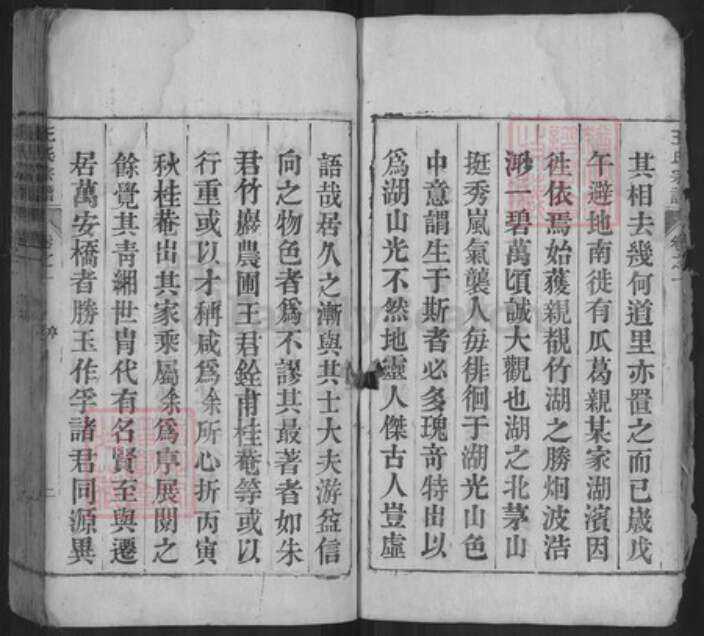 其相去幾何道里亦置之而已歲戊
午避地南徙有瓜葛親某家湖濱因
徃依焉始獲親覩竹湖之勝烟波浩
渺一碧萬頃誠大觀也湖之北茅山
挺秀嵐氣襲人每徘徊于湖光山色
中意謂生于斯者必多瑰奇特出以
爲湖山光不然地靈人傑古人豈虛
語哉居久之漸與其士大夫游益信
向之物色者爲不謬其最著者如朱
君竹巖農圃王君銓甫桂菴等或以
行重或以才稱咸爲余所心折丙寅
秋桂菴出其家乘屬余爲序展閱之
餘覺其靑緗世胄代有名賢至與遷
居萬安橋者勝玉作孚諸君同源異
王氏宗譜
卷之一